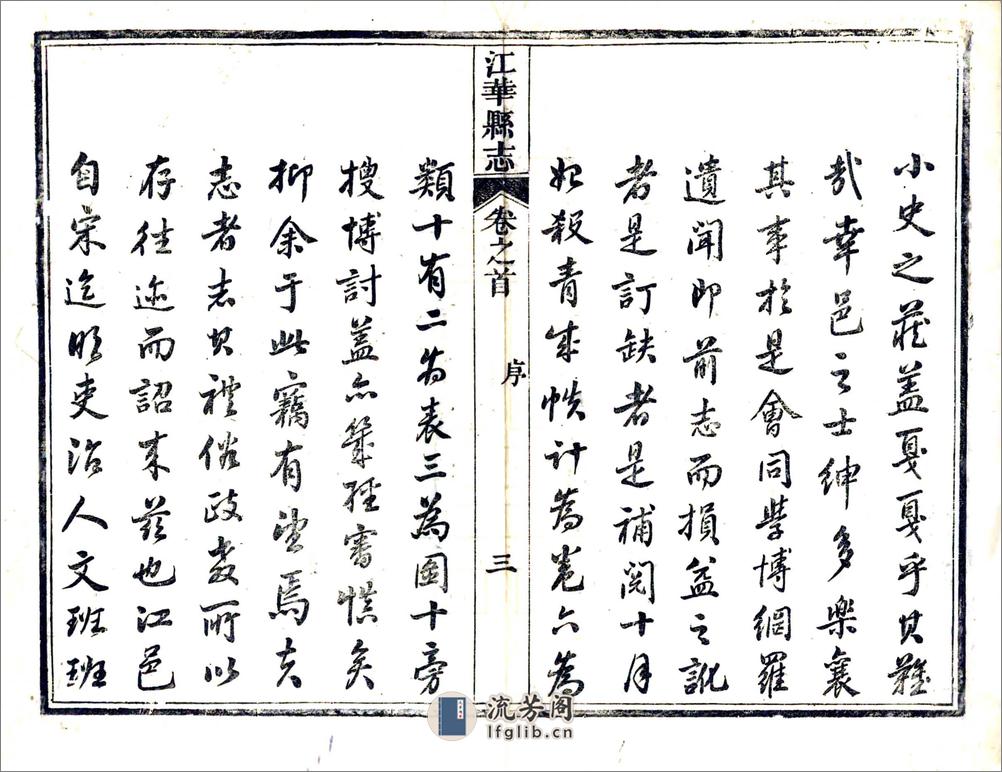 小史之蕆盖戛戛乎其難
哉幸邑之士紳多樂襄
其事於是會同學博網羅
遺聞即前志而損益之訛
者是訂缺者是補閱十月
始殺青成帙計為卷六為
江華縣志 卷之首 序 三
類十有二為表三為圖十旁
搜博討盖亦幾經審慎矣
抑余于此竊有望焉夫
志者志其禮俗政教所以
存往迹而詔来茲也江邑
自宋迄明吏治人文班班
流芳阁
lfglib.cn